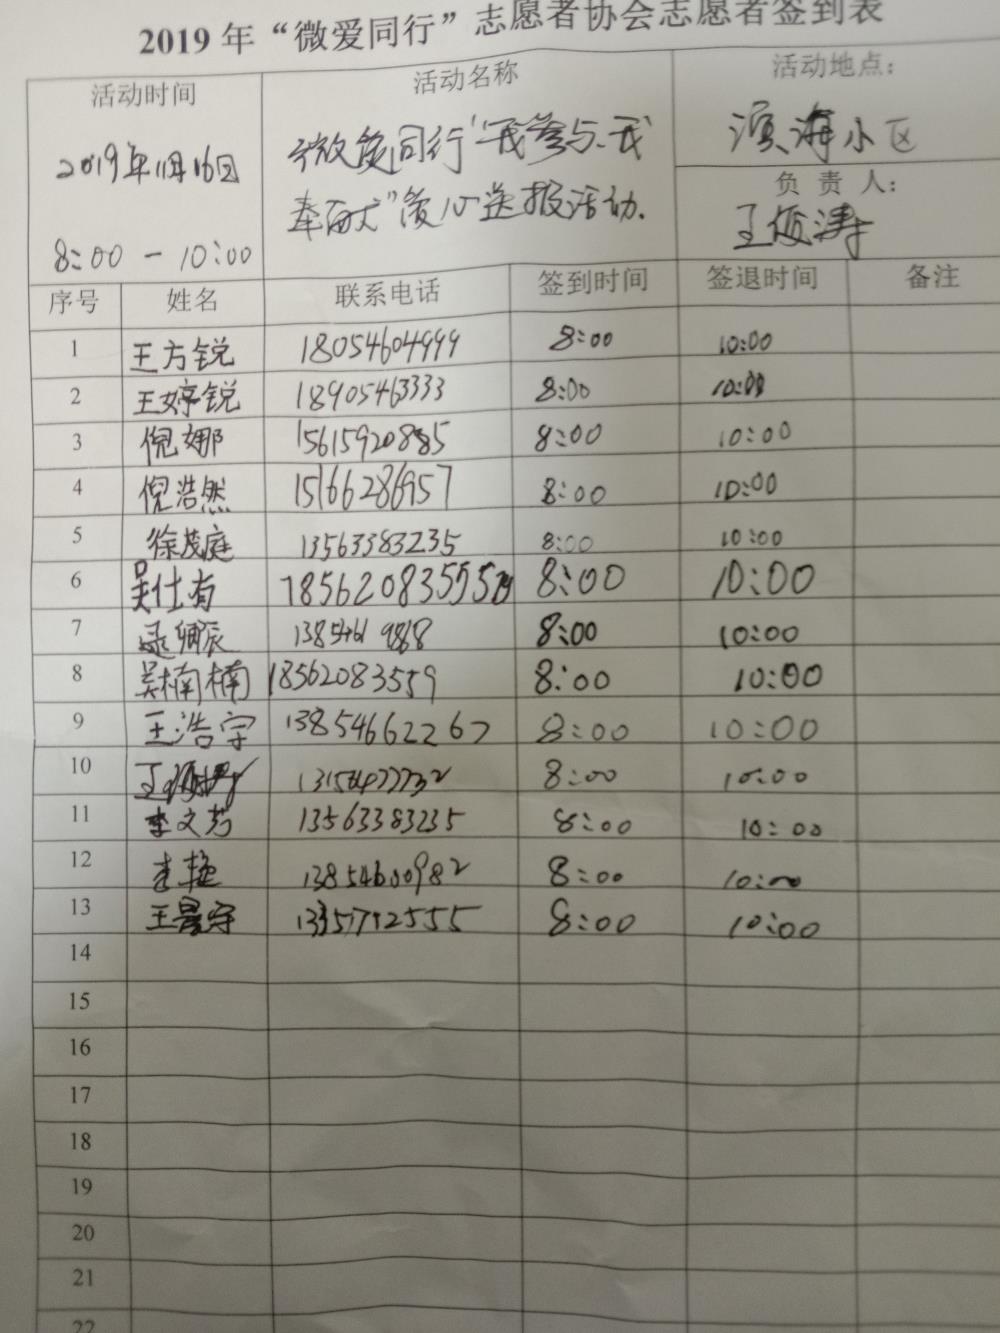 2019 年“微爱同行”志愿者协会志愿者签到表
活动时间 活动名称 活动地点:
2019年11月16日 微爱同行“我参与、我 滨海小区
奉献”爱心送报活动. 负 责 人:
8:00 — 10:00 王俊涛
序号 姓名 联系电话 签到时间 签退时间 备注
1 王方锐 18054604999 8:00 10:00
2 王婷锐 18905463333 8:00 10:00
3 倪娜 15615920885 8:00 10:00
4 倪浩然 15166286957 8:00 10:00
5 徐茂庭 13563383235 8:00 10:00
6 吴仕有 8:00 10:00
7 8:00 10:00
8 吴楠楠 18562083559 8:00 10:00
9 王浩宇 13854662267 8:00 10:00
10 8:00 10:00
11 李文芳 13563383235 8:00 10:00
12 李艳 13854600982 8:00 10:00
13 王晨宇 8:00 10:00
14
15
16
17
18
19
20
21
22